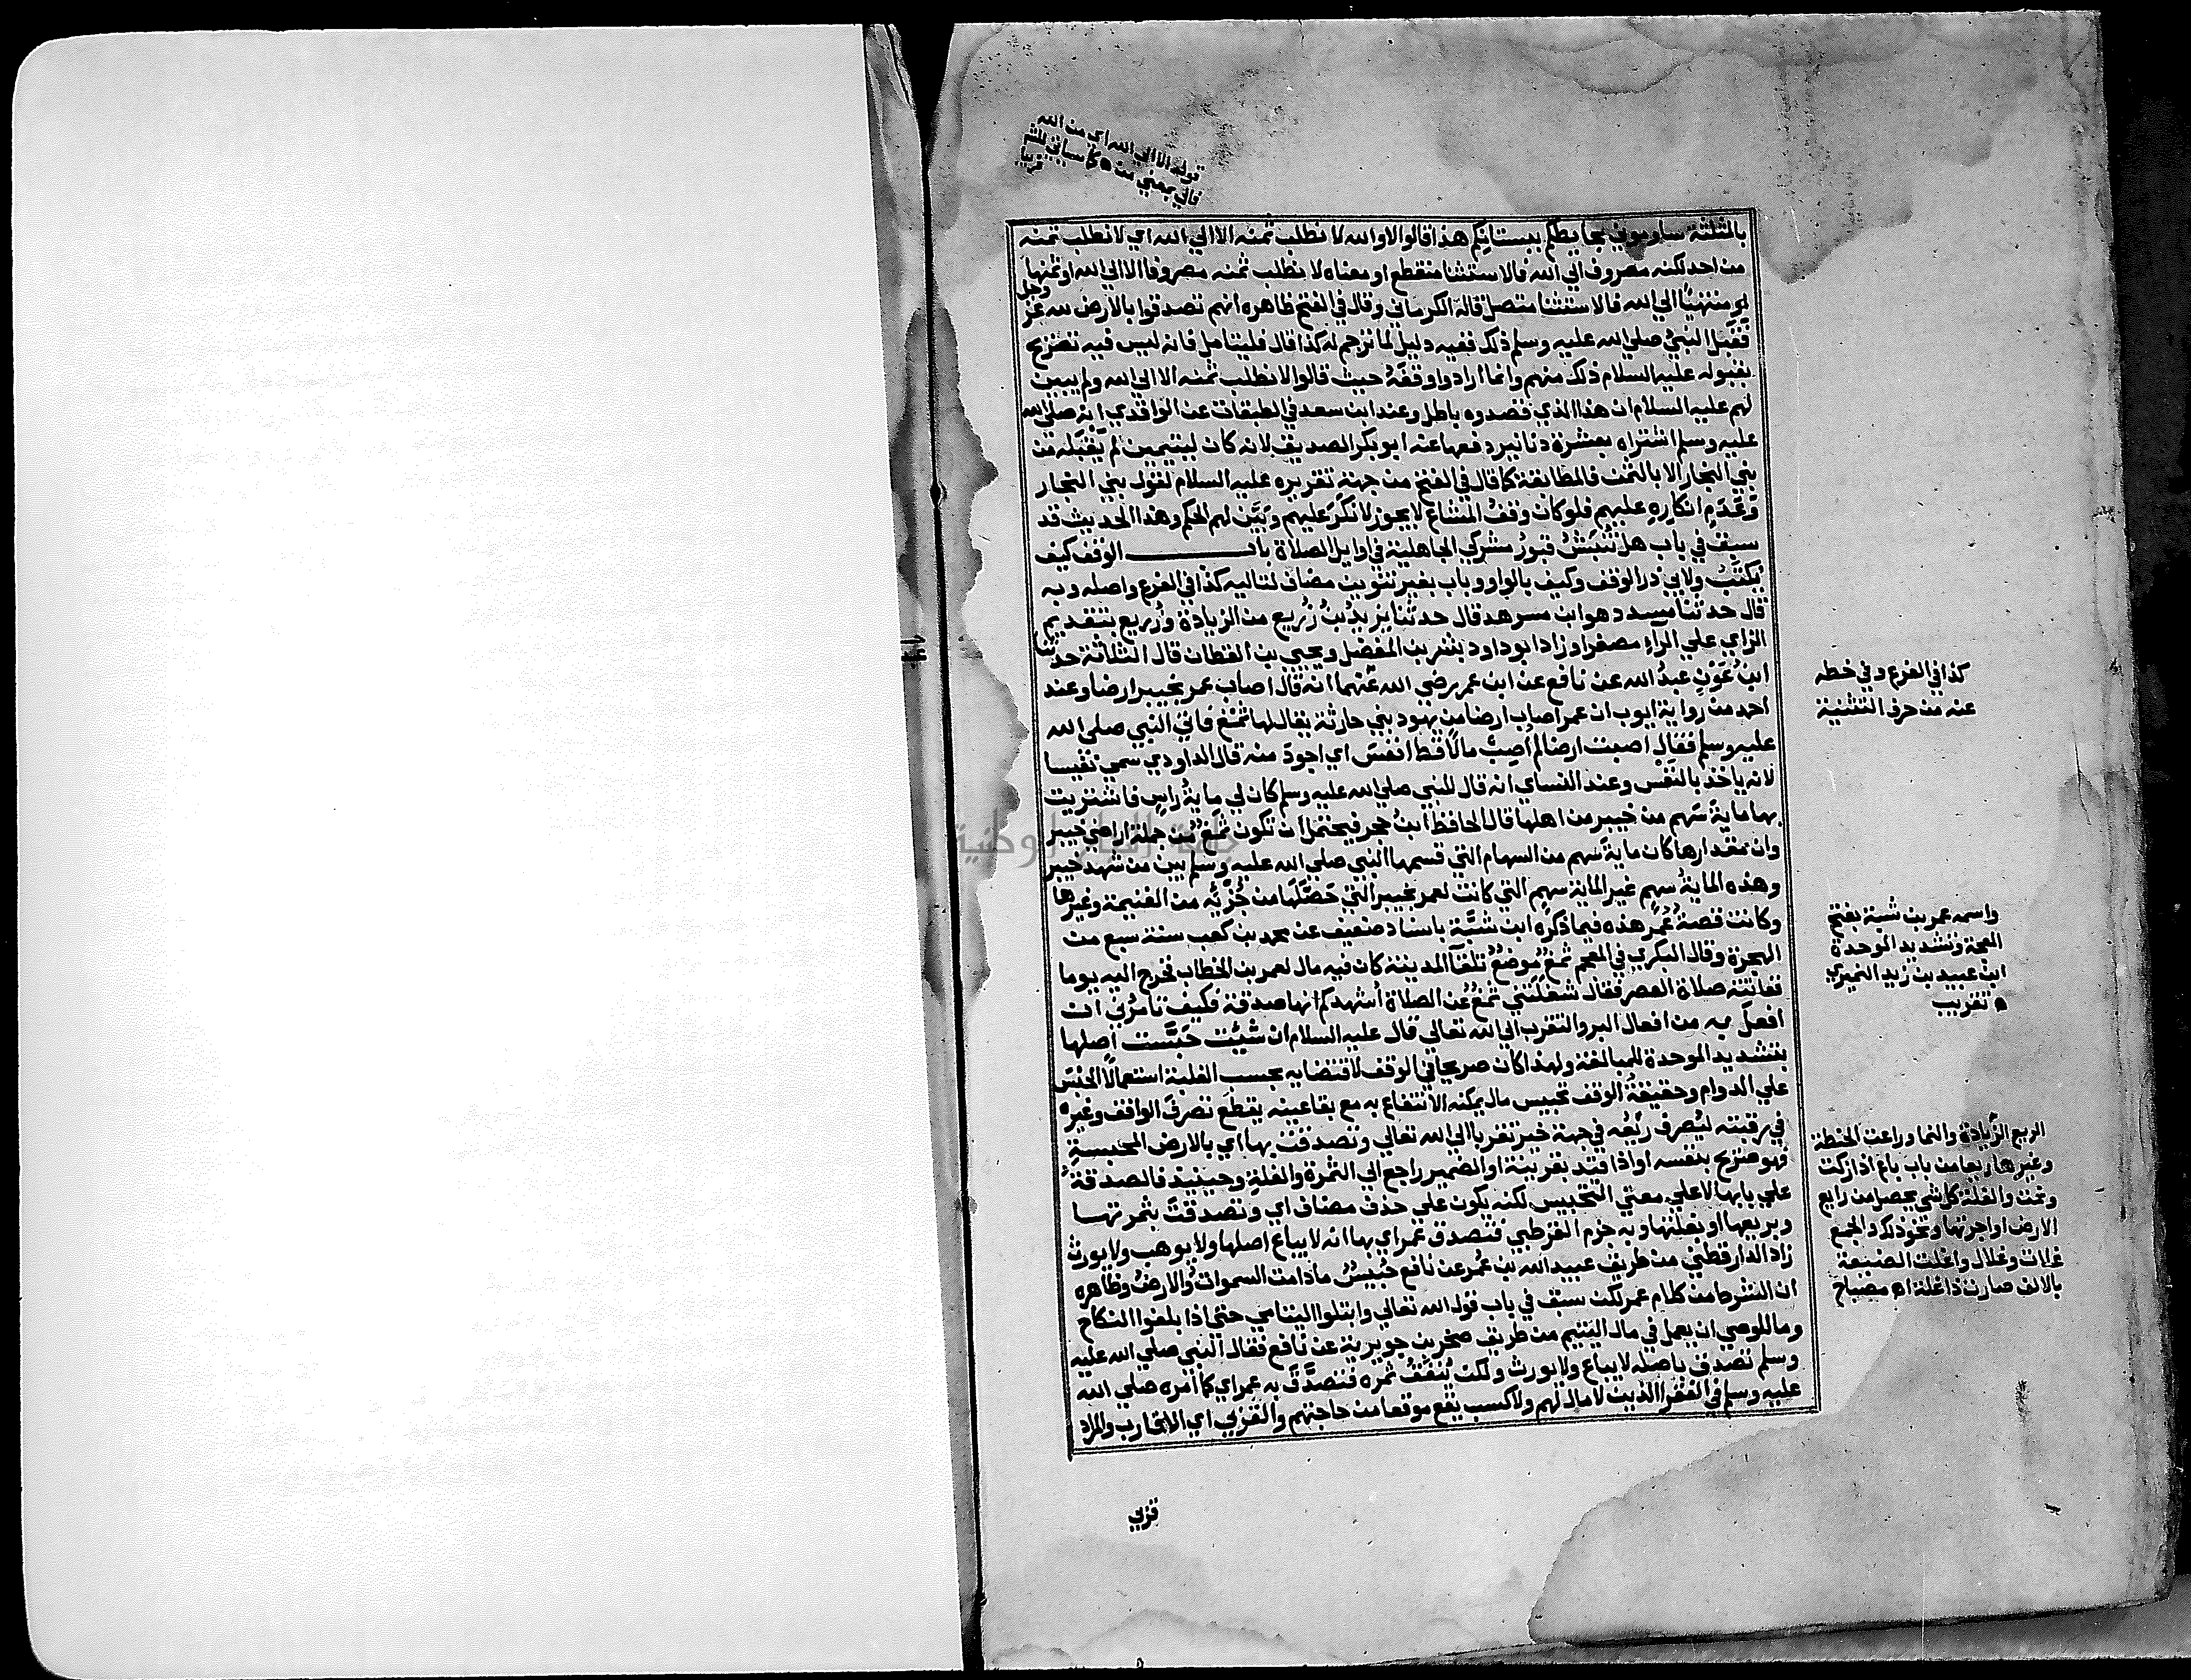 قوله الا الي الله اي من الله
فالي بمعني من ه كما سياتي للشم
قريبا
بالمثلثة ساوموني بحايطكم ببستانكم هذا قالوا لا والله لا نطلب ثمنه الا الي الله اي لا نطلب ثمنه
من احد لكنه مصروف الي الله فالاستثنا منقطع او معناه لا نطلب ثمنه مصروفا الا الي الله او ثمنها
او منتهيا الي الله فالاستثنا متصل قاله الكرماني وقال في الفتح ظاهره انهم تصدقوا بالارض لله عز وجل
فقبل النبي صلي الله عليه وسلم ذلك ففيه دليل لما ترجم له كذا قال فليتامل فانه ليس فيه تصريح
بقبوله عليه السلام ذلك منهم وانما ارادوا وقفه حيث قالوا لا نطلب ثمنه الا الي الله ولم يبين
لهم عليه السلام ان هذا الذي قصدوه باطل وعند ابن سعد في الطبقات عن الواقدي انه صلي الله
عليه وسلم اشتراه بعشرة دنانير دفعها عنه ابو بكر الصديق لانه كان ليتيمين لم يقبله من
بني النجار الا بالثمن فالمطابقة كما قال في الفتح من جهة تقريره عليه السلام لقول بني النجار
وعدم انكاره عليهم فلو كان وقف المشاع لا يجوز لانكر عليهم وبين لهم الحكم وهذا الحديث قد
سبق في باب هل تنبش قبور مشركي الجاهلية في اوايل الصلاة باب الوقف كيف
يكتب ولابي ذر الوقف وكيف بالواو وباب بغير تنوين مضاف لتاليه كذا في الفرع واصله وبه
قال حدثنا مسدد هو ابن مسرهد قال حدثنا يزيد بن زريع من الزيادة وزريع بتقديم
الزاي علي الراء مصغرا وزاد ابو داود بشر بن المفضل ويحيي بن القطان قال الثلاثة حدثنا
ابن عون عبد الله عن نافع عن ابن عمر رضي الله عنهما انه قال اصاب عمر بخيبر ارضا وعند
احمد من رواية ايوب ان عمر اصاب ارضا من يهود بني حارثة يقال لها ثمغ فاتي النبي صلي الله
عليه وسلم فقال اصبت ارضا لم اصب مالا قط انفس اي اجود منه قال الداودي سمي نفيسا
لانه ياخذ بالنفس وعند النساي انه قال للنبي صلي الله عليه وسلم كان لي ماية راس فاشتريت
بها ماية سهم من خيبر من اهلها قال الحافظ ابن حجر فيحتمل ان تكون ثمغ من جملة اراضي خيبر
وان مقدارها كان ماية سهم من السهام التي قسمها النبي صلي الله عليه وسلم بين من شهد خيبر
وهذه الماية سهم غير الماية سهم التي كانت لعمر بخيبر التي حصلها من جزيه من الغنيمة وغيرها
وكانت قصة عمر هذه فيما ذكره ابن شبة باسناد ضعيف عن محمد بن كعب سنة سبع من
الهجرة وقال البكري في المعجم ثمغ موضع تلقا المدينة كان فيه مال لعمر بن الخطاب فخرج اليه يوما
ففاتته صلاة العصر فقال شغلتني ثمغ عن الصلاة اشهدكم انها صدقة فكيف تامرني ان
افعل به من افعال البر والتقرب الي الله تعالي قال عليه السلام ان شئت حبست اصلها
بتشديد الموحدة للمبالغة ولهذا كان صريحا في الوقف لاقتضايه بحسب الغلبة استعمالا الحبس
علي الدوام وحقيقة الوقف تحبيس مال يمكنه الانتفاع به مع بقا عينه بقطع تصرف الواقف وغيره
في رقبته ليصرف ريعه في جهة خير تقربا الي الله تعالي وتصدقت بها اي بالارض المحبسة
فهو صريح بنفسه او اذا قيد بقرينة او الضمير راجع الي الثمرة والغلة وحينيذ فالصدقة
علي بابها لا علي معني التحبيس لكنه يكون علي حذف مضاف اي وتصدقت بثمرتها
وبريعها او بغلتها وبه جزم القرطبي فتصدق عمر اي بها انه لا يباع اصلها ولا يوهب ولا يورث
زاد الدارقطني من طريق عبيد الله بن عمر عن نافع حبيس ما دامت السموات والارض وظاهره
ان الشرط من كلام عمر لكن سبق في باب قول الله تعالي وابتلوا اليتامي حتي اذا بلغوا النكاح
وما للوصي ان يعمل في مال اليتيم من طريق صخر بن جويرية عن نافع فقال النبي صلي الله عليه
وسلم تصدق باصله لا يباع ولا يورث ولكن ينفق ثمره فتصدق به عمر اي كما امره صلي الله
عليه وسلم في الفقرا الذين لا مال لهم ولا كسب يقع موقعا من حاجتهم والقربي اي الاقارب والمراد
قربي
كذا في الفرع وفي خطه
عنه من حرف التثنية
واسمه عمر بن شبة بفتح
المعجمة وتشديد الموحدة
ابن عبيد بن زيد النميري
ه تقريب
الريع الزيادة والنما وراعت الحنطة
وغيرها ريعا من باب باع اذا زكت
ونمت والغلة كل شي يحصل من رايع
الارض او اجرتها ونحو ذلك والجمع
غلات وغلال واغلت الضيعة
بالالف صارت ذا غلة اه مصباح